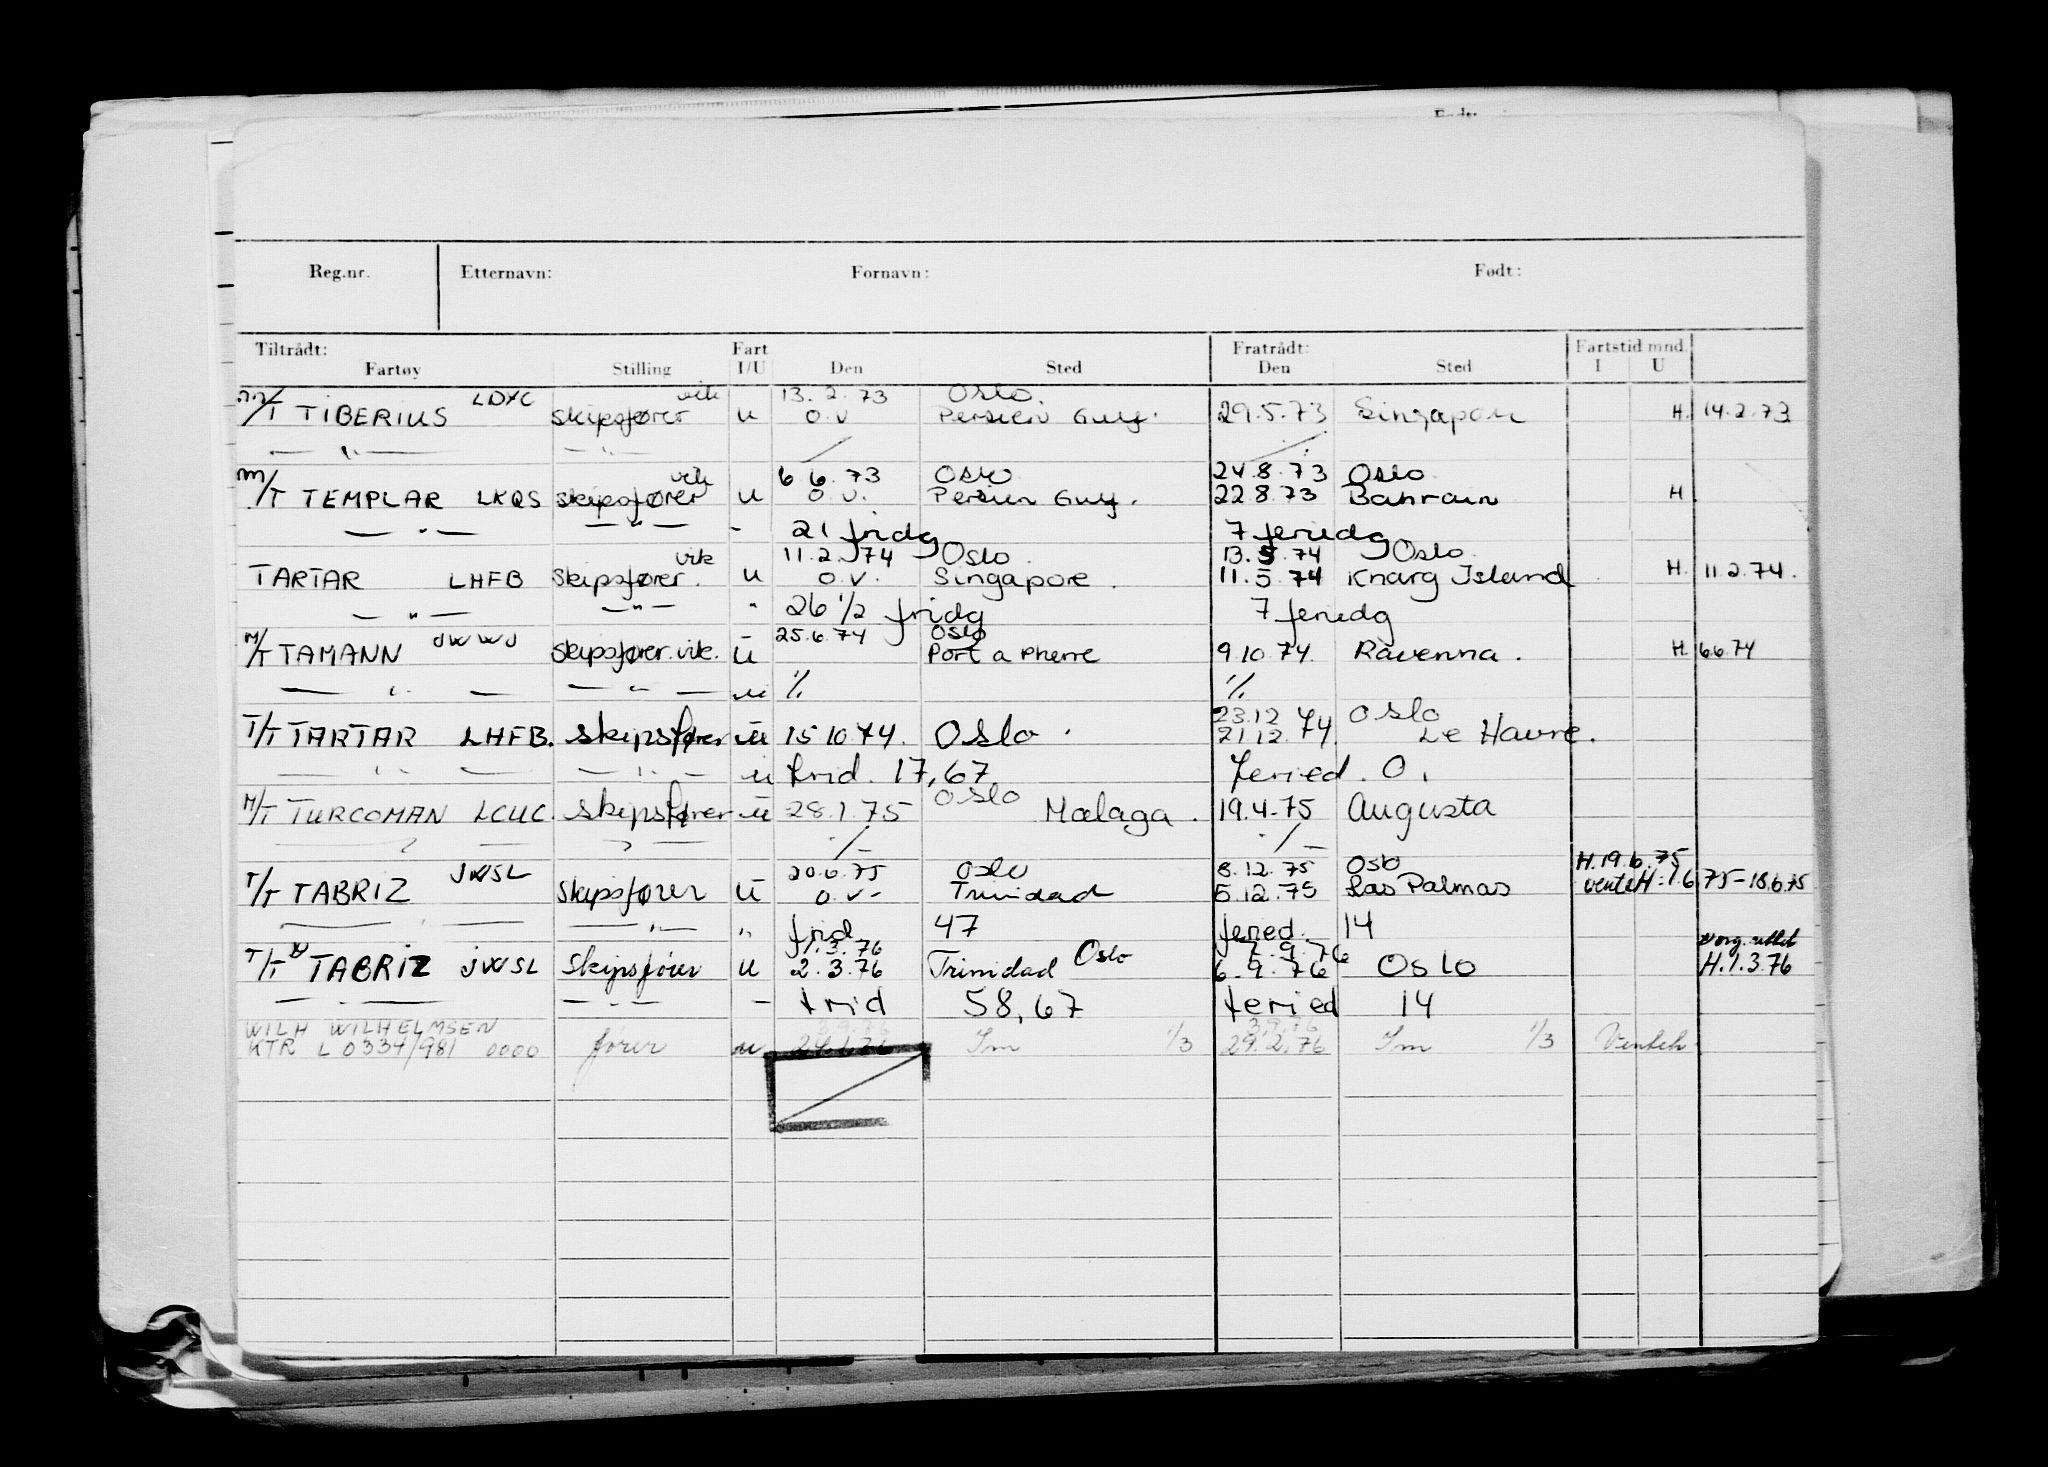 Reg.nr. Etternavn: Fornavn: Født:
Tiltrådt: Fart Fratrådt: Fartstid mnd.
Fartøy Stilling I/U Den Sted Den Sted I U
vik 13.2.73 Oslo.
M/T TIBERIUS LDYC Skipsfører u o.v Persien Gulf. 29.5.73 Singapore H. 14.2.73
— " — — " — / /
vik 6.6.73 Oslo 24.8.73 Oslo
M/T TEMPLAR LKQS Skipsfører u o.v. Persien Gulf. 22.8.73 Bahrain H
— " — — " — - 21 fridg 7 feriedg
vik 11.2.74 Oslo. 13.5.74 Oslo.
TARTAR LHFB Skipsfører. u o.v. Singapore. 11.5.74 Kharg Island H. 11.2.74.
— " — — " — " 26 1/2 fridg 7 feriedg
25.6.74 Oslo
M/T TAMANN JWWJ Skipsfører. vik. u Port a Pherre 9.10.74. Ravenna. H. 6.6.74
— " — — " — u % %
23.12.74 Oslo
T/T TARTAR LHFB. Skipsfører u 15.10.74. Oslo. 21.12.74. Le Havre.
— " — — " — u frid. 17,67 feried. 0.
Oslo
M/T TURCOMAN LCUC. Skipsfører u 28.1.75 Malaga. 19.4.75 Augusta
— " — — " — ./— ./—
20.6.75 Oslo 8.12.75 Oslo H.19.6.75
T/T TABRIZ JWSL Skipsfører u o.v- Trinidad 5.12.75 Las Palmas venteH: 1.6.75-18.6.75
— " — — " — " frid 47 feried. 14
1.3.76 Oslo 7.9.76
T/T TABRIZ JWSL Skipsfører u 2.3.76 Trinidad 6.9.76 Oslo H.1.3.76
— " — — " — - frid 58,67 feried 14
WILH WILHELMSEN 3.9.76
KTR L 0334/981 0000 fører u Im 1/3 29.2.76 Im 1/3 Venteh